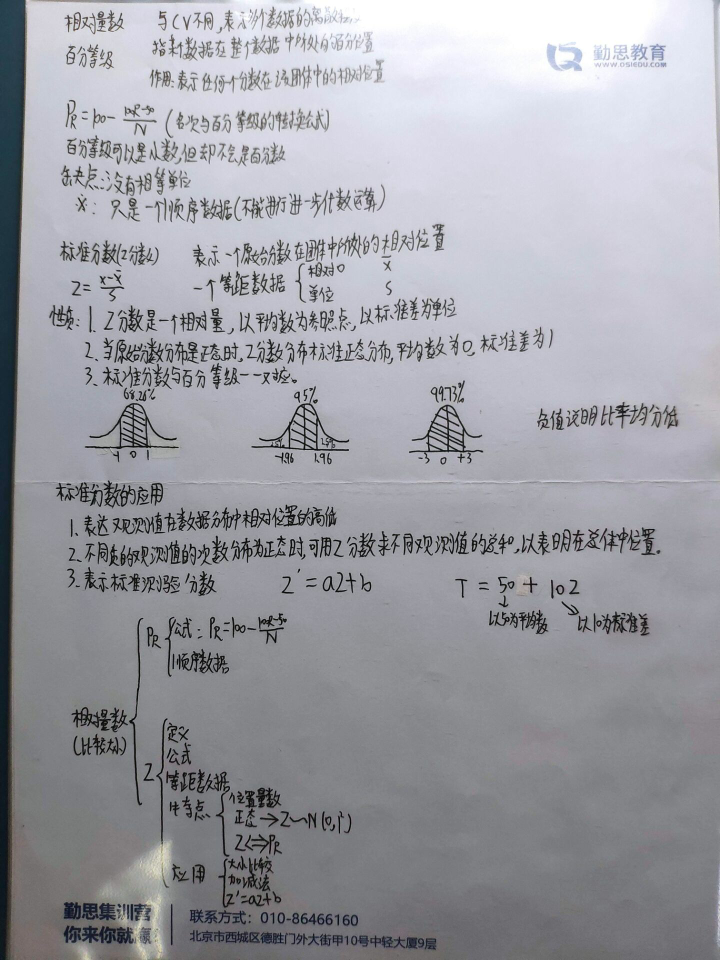 相对量数 与CV不同,表示多个数据的离散
百分等级 指某个数据在整个数据中所处的百分位置
勤思教育
WWW.QSIEDU.COM
作用:表示任何一个分数在该团体中的相对位置
PR=100-(100R-50)/N (名次与百分等级的转换公式)
百分等级可以是小数,但却不会是百分数
缺点:没有相等单位
只是一个顺序数据(不能进行进一步代数运算)
标准分数(Z分数) 表示一个原始分数在团体中所处的相对位置
Z=(x-x̄)/S 一个等距数据 { 相对0 x̄
单位 S
性质:1. Z分数是一个相对量,以平均数为参照点,以标准差为单位
2. 当原始分数分布是正态时,Z分数分布标准正态分布,平均数为0,标准差为1
3. 标准分数与百分等级一一对应。
68.26% 95% 99.73%
负值说明比率均分低
-1 0 1 2.5% 2.5% -1.96 1.96 -3 0 +3
标准分数的应用
1. 表达观测值在数据分布中相对位置的高低
2. 不同质的观测值的次数分布为正态时,可用Z分数求不同观测值的总和,以表明在总体中位置。
3. 表示标准测验分数 Z'=aZ+b T=50+10Z
以50为平均数 以10为标准差
PR { 公式:PR=100-(100R-50)/N
顺序数据
相对量数
(比较大小)
Z { 定义
公式
等距数据
特点 { 位置量数
正态→Z~N(0,1²)
Z<=>PR
应用 { 大小比较
加减法
Z'=aZ+b
勤思集训营
你来你就赢
联系方式:010-86466160
北京市西城区德胜门外大街甲10号中轻大厦9层